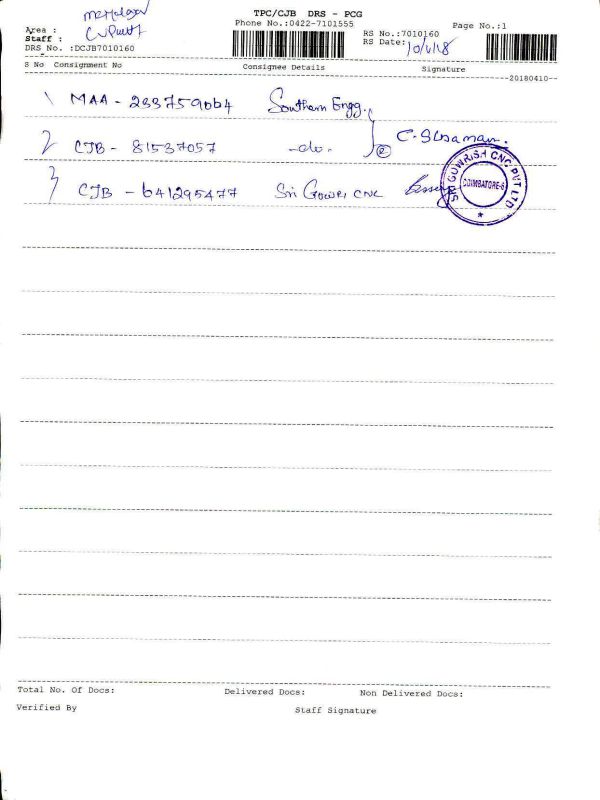 TPC/CJB DRS - PCG
Phone No.:0422-7101555
Page No.:1
Area :
Staff :
DRS No. :DCJB7010160
RS No.:7010160
RS Date: 10/4/18
S No Consignment No Consignee Details Signature
--20180410--
1 MAA - 233759064 Southern Engg.
2 CJB - 81537057 -do-
3 CJB - 641295477 Sri Gowri CNC
SRI GOWRISH CNC PVT LTD
COIMBATORE-6
Total No. Of Docs: Delivered Docs: Non Delivered Docs:
Verified By Staff Signature